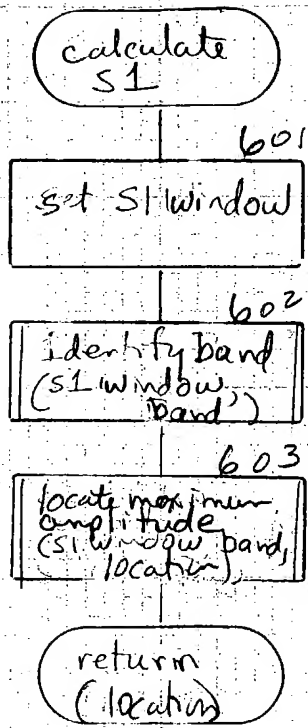 calculate
S1
601
set S1window
602
identify band
(s1window,
band)
603
locate maximum
amplitude
(s1window, band,
location)
return
(location)